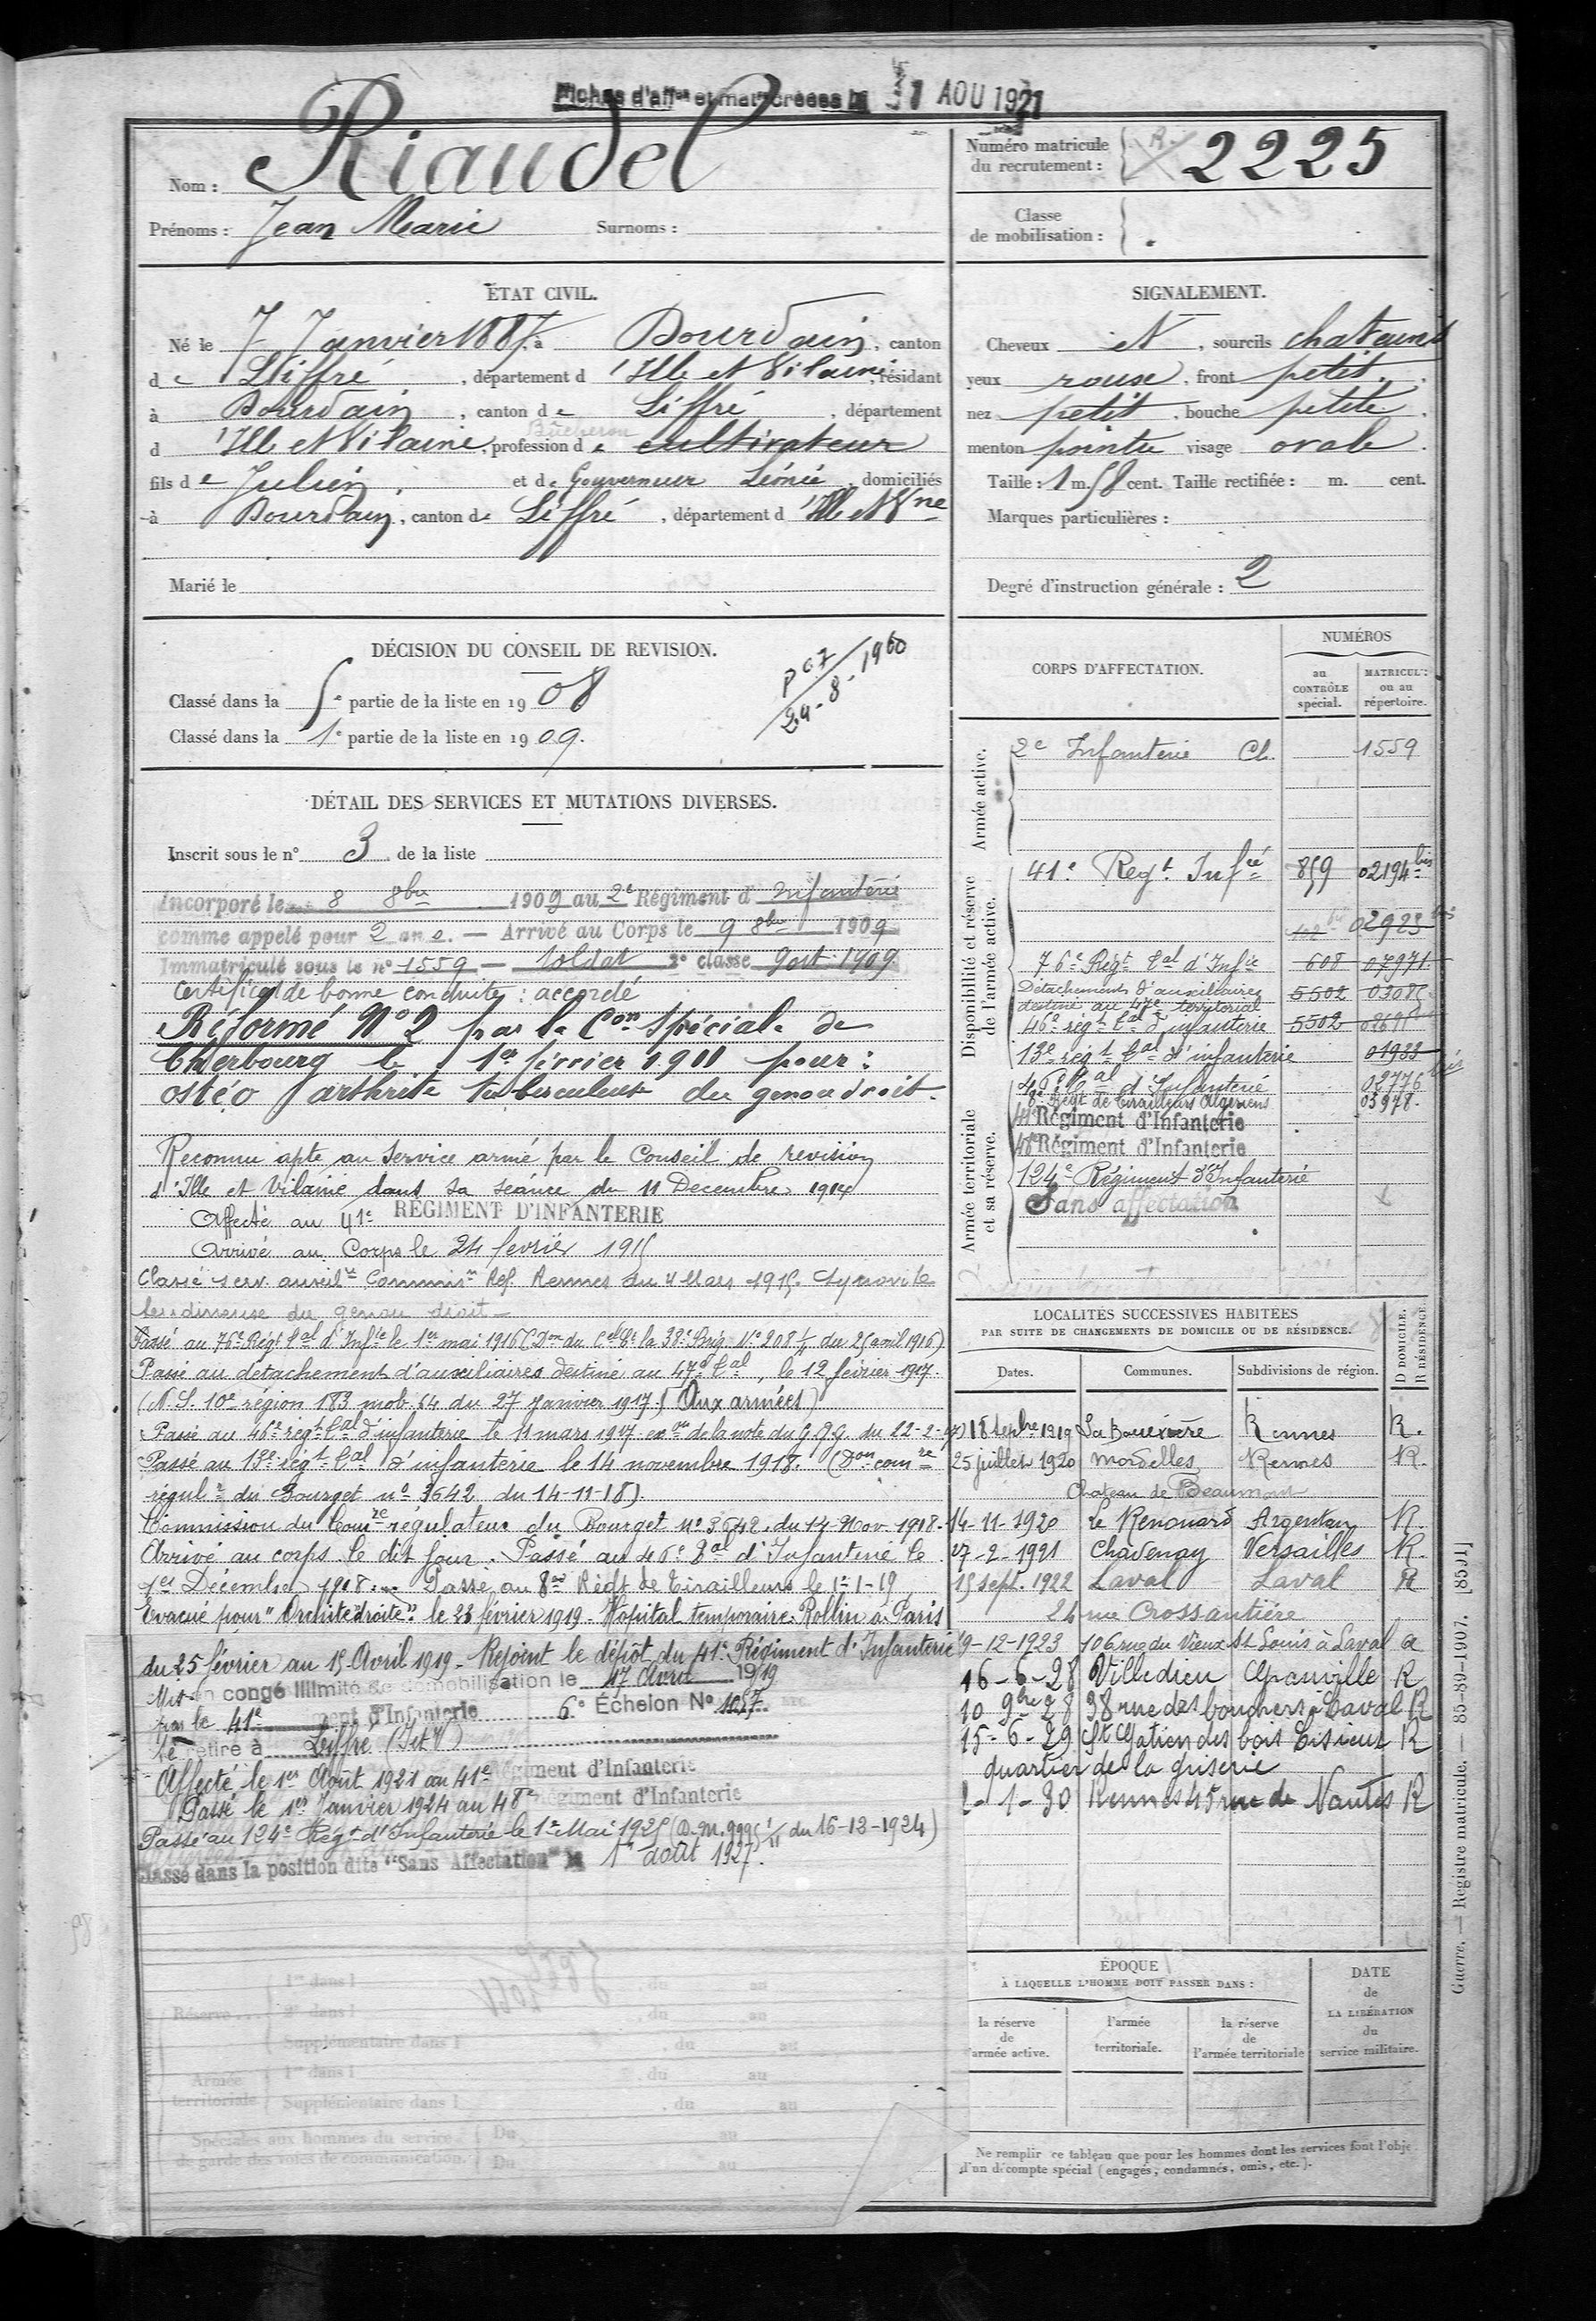 Fiches d'aff^on et mat^le créées le 31 AOU 1921
Nom : Riaudel
Prénoms : Jean Marie Surnoms :
Numéro matricule du recrutement : R. 2225
Classe de mobilisation :
ÉTAT CIVIL.
Né le 7 Janvier 1887, à Dourdain, canton
de Liffré, département d'Ille et Vilaine, résidant
à Dourdain, canton de Liffré, département
d'Ille et Vilaine, profession de cultivateur Bûcheron
fils de Julien, et de Gouverneur Léonie, domiciliés
à Dourdain, canton de Liffré, département d'Ille et V^ne
Marié le
SIGNALEMENT.
Cheveux et, sourcils chatains
yeux roux, front petit,
nez petit, bouche petite,
menton pointu visage ovale.
Taille : 1 m. 58 cent. Taille rectifiée : m. cent.
Marques particulières :
Degré d'instruction générale : 2
DÉCISION DU CONSEIL DE REVISION.
Classé dans la 5e partie de la liste en 1908
Classé dans la 1e partie de la liste en 1909.
24-8-1960
DÉTAIL DES SERVICES ET MUTATIONS DIVERSES.
Inscrit sous le n° 3 de la liste
Incorporé le 8 8bre 1909 au 2e Régiment d'Infanterie
comme appelé pour 2 ans. — Arrivé au Corps le 9 8bre 1909
Immatriculé sous le n° 1559 — Soldat 2e classe 9 oct. 1909
Certificat de bonne conduite : accordé
Réformé N° 2 par la C^on spéciale de
Cherbourg le 1er février 1911 pour :
ostéo arthrite tuberculeuse du genou droit.
Reconnu apte au service armé par le Conseil de revision
d'Ille et Vilaine dans sa séance du 11 Decembre 1914
Affecté au 41e RÉGIMENT D'INFANTERIE
Arrivé au Corps le 24 fevrier 1915
Classé serv. auxil^re Commis^n Réf. Rennes du 4 Mars 1915. Synovite
tendineuse du genou droit —
Passé au 76e Régt t^al d'Inf^ie le 1er mai 1916 (D^on du C^el C^t la 38e Brig. N° 208 1/11 du 25 avril 1916)
Passé au detachement d'auxiliaires destiné au 47e t^al, le 12 février 1917.
(N.S. 10e région 183 mob. 64 du 27 janvier 1917.) (Aux armées)
Passé au 46e régt t^al d'infanterie le 11 mars 1917 ex^on de la note du G.Q.G. du 22-2-17)
Passé au 13e régt t^al d'infanterie le 14 novembre 1918. (D^on com^re
régul^r du Bourget n° 3642 du 14-11-18).
Commission du Com^re régulateur du Bourget N° 3642, du 14 Nov 1918.
Arrivé au corps le dit jour. Passé au 46e t^al d'Infanterie le
1er Décembre 1918. Passé au 8e Régt de Tirailleurs le 1-1-19
Evacué pour "Orchite droite" le 23 février 1919. Hopital temporaire Rollin à Paris
du 25 février au 15 Avril 1919 - Rejoint le dépôt du 41e Régiment d'Infanterie
Mis en congé illimité de démobilisation le 17 Avril 1919
par le 41e Régiment d'Infanterie 6e Échelon N° 1057
Se retire à Liffré (I et V)
Affecté le 1er Août 1921 au 41e Régiment d'Infanterie
Passé le 1er Janvier 1924 au 48e Régiment d'Infanterie
Passé au 124e Régt d'Infanterie le 1er Mai 1925 (D.M. 9995 1/11 du 16-12-1924)
Classé dans la position dite "Sans Affectation" le 1er août 1927.
CORPS D'AFFECTATION.
NUMÉROS
au CONTRÔLE spécial.
MATRICUL^e ou au répertoire.
Armée active.
2e Infanterie Ch. 1559
Disponibilité et réserve de l'armée active.
41e Regt Inf^ie 859 02194 bis
02923 bis
76e Régt t^al d'Inf^ie 608 07971
Détachement d'auxiliaires
destiné au 47e territorial 5502
46e régt t^al d'infanterie 5502
13e régt t^al d'infanterie 01933
Armée territoriale et sa réserve.
46e t^al d'Infanterie 02776 bis
8e Régt de Tirailleurs Algériens 03978
41e Régiment d'Infanterie
48e Régiment d'Infanterie
124e Régiment d'Infanterie
Sans affectation
LOCALITÉS SUCCESSIVES HABITÉES
PAR SUITE DE CHANGEMENTS DE DOMICILE OU DE RÉSIDENCE.
Dates. Communes. Subdivisions de région. D DOMICILE. R RÉSIDENCE.
18 Septbre 1919 La Bouexière Rennes R.
25 juillet 1920 Mordelles Rennes R.
Chateau de Beaumont
14-11-1920 Le Renouard Argentan R.
27-2-1921 Chavenay Versailles R.
15 Sept. 1922 Laval Laval R
24 rue Crossardière
9-12-1923 106 rue du Vieux St Louis à Laval R
16-6-28 Villedieu Granville R
10 9bre 28 38 rue des bouchers à Laval R
15-6-29 St Gatien des bois Lisieux R
quartier de la griserie
2-1-30 Rennes 45 rue de Nantes R
Réserve... 1re dans l du au
2e dans l du au
Supplémentaire dans l du au
Armée territoriale 1re dans l du au
Supplémentaire dans l du au
Spéciales aux hommes du service Du au
de garde des voies de communication. Du au
ÉPOQUE
À LAQUELLE L'HOMME DOIT PASSER DANS :
la réserve de l'armée active.
l'armée territoriale.
la réserve de l'armée territoriale
DATE de LA LIBÉRATION du service militaire.
Ne remplir ce tableau que pour les hommes dont les services font l'obje
d'un décompte spécial (engagés, condamnés, omis, etc.).
Guerre. — Registre matricule. — 85-89-1907. [8591]